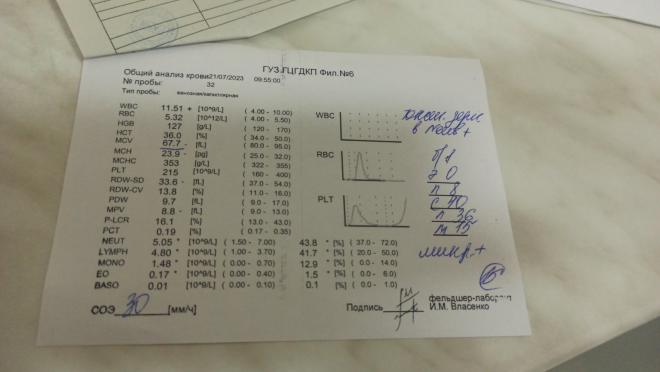 ГУЗ ГЦГДКП Фил.№6
Общий анализ крови 21/07/2023 09:55:00
№ пробы: 32
Тип пробы: венозная/капиллярная
WBC 11.51 + [10^9/L] ( 4.00 - 10.00)
RBC 5.32 [10^12/L] ( 4.00 - 5.50)
HGB 127 [g/L] ( 120 - 170)
HCT 36.0 [%] ( 34.0 - 50.0)
MCV 67.7 - [fL] ( 80.0 - 95.0)
MCH 23.9 - [pg] ( 25.0 - 32.0)
MCHC 353 [g/L] ( 322 - 355)
PLT 215 [10^9/L] ( 160 - 400)
RDW-SD 33.6 - [fL] ( 37.0 - 54.0)
RDW-CV 13.8 [%] ( 11.0 - 16.0)
PDW 9.7 [fL] ( 9.0 - 17.0)
MPV 8.8 - [fL] ( 9.0 - 13.0)
P-LCR 16.1 [%] ( 13.0 - 43.0)
PCT 0.19 [%] ( 0.17 - 0.35)
NEUT 5.05 * [10^9/L] ( 1.50 - 7.00) 43.8 * [%] ( 37.0 - 72.0)
LYMPH 4.80 * [10^9/L] ( 1.00 - 3.70) 41.7 * [%] ( 20.0 - 50.0)
MONO 1.48 * [10^9/L] ( 0.00 - 0.70) 12.9 * [%] ( 0.0 - 14.0)
EO 0.17 * [10^9/L] ( 0.00 - 0.40) 1.5 * [%] ( 0.0 - 6.0)
BASO 0.01 [10^9/L] ( 0.00 - 0.10) 0.1 [%] ( 0.0 - 1.0)
СОЭ 30 [мм/ч]
WBC
RBC
PLT
э 0
п 8
с 40
л 36
м 15
микр. +
Подпись
фельдшер-лаборант
И.М. Власенко